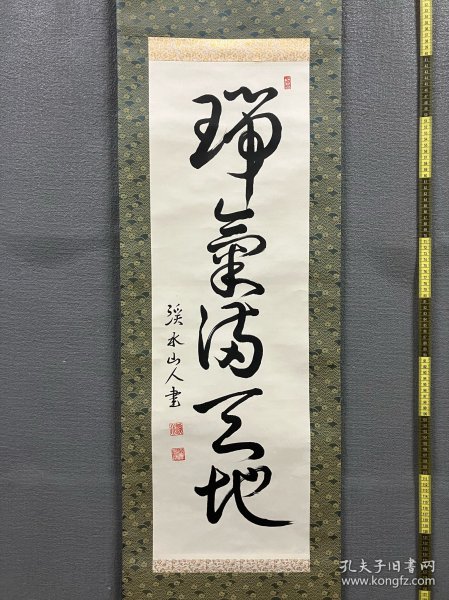 瑞氣満天地
溪水山人書
孔夫子旧书网
www.kongfz.com